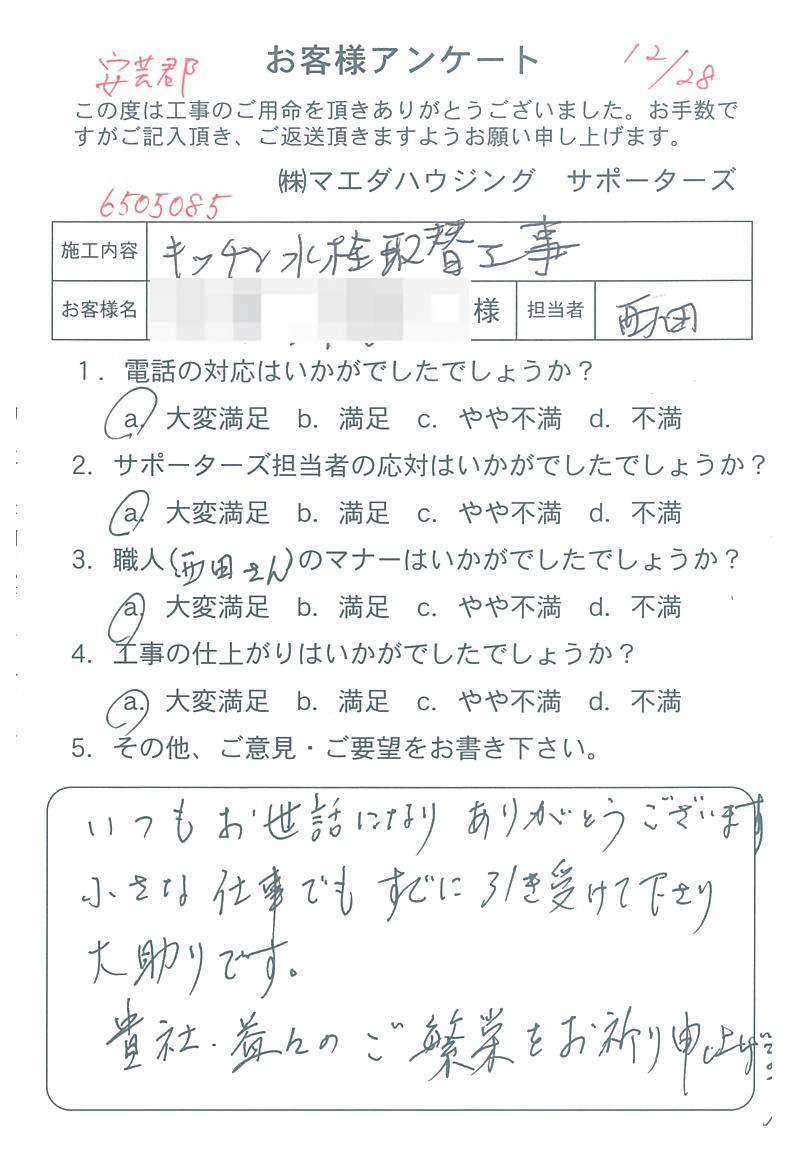 安芸郡
お客様アンケート
12/28
この度は工事のご用命を頂きありがとうございました。お手数で
すがご記入頂き、ご返送頂きますようお願い申し上げます。
㈱マエダハウジング　サポーターズ
6505085
施工内容 キッチン水栓取替工事
お客様名 様 担当者 西田
1. 電話の対応はいかがでしたでしょうか？
a. 大変満足 b. 満足 c. やや不満 d. 不満
2. サポーターズ担当者の応対はいかがでしたでしょうか？
a. 大変満足 b. 満足 c. やや不満 d. 不満
3. 職人(西田さん)のマナーはいかがでしたでしょうか？
a. 大変満足 b. 満足 c. やや不満 d. 不満
4. 工事の仕上がりはいかがでしたでしょうか？
a. 大変満足 b. 満足 c. やや不満 d. 不満
5. その他、ご意見・ご要望をお書き下さい。
いつもお世話になり ありがとうございます
小さな仕事でも すぐに引き受けて下さり
大助りです。
貴社.益々のご繁栄をお祈り申し上げ